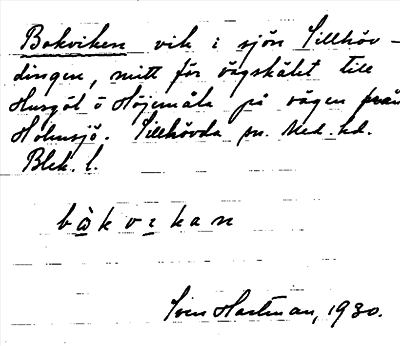 Bokviken vik i sjön Sillhöv-
dingen, mitt för vägskälet till
Husgöl o Höjemåla på vägen från
Holmsjö. Sillhövda sn. Med. hd.
Blek. l.
bàkvikan
Sven Hartman, 1930.